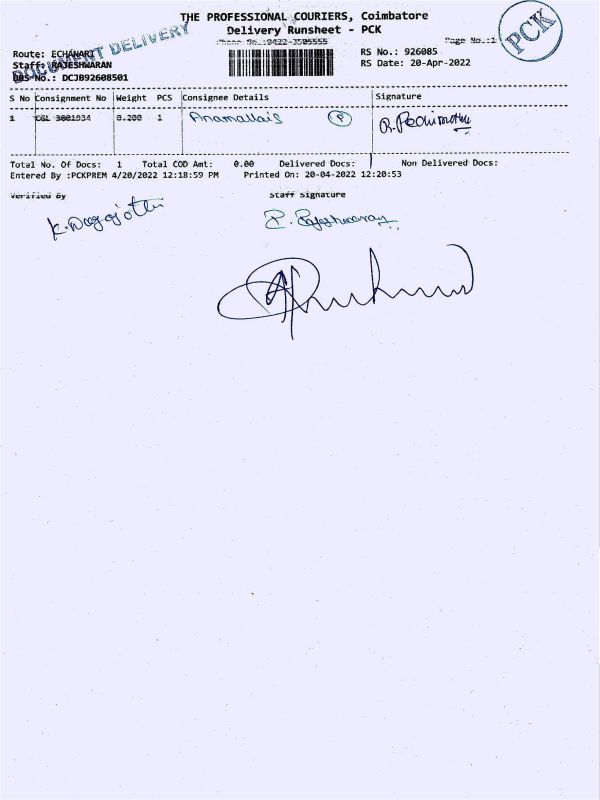 THE PROFESSIONAL COURIERS, Coimbatore
Delivery Runsheet - PCK
Phone No.:0422-3505555
Page No.:1
PCK
DOCUMENT DELIVERY
Route: ECHANARI
Staff: RAJESHWARAN
DRS No.: DCJB92608501
RS No.: 926085
RS Date: 20-Apr-2022
S No Consignment No Weight PCS Consignee Details Signature
1 CGL 3601934 0.200 1 Anamallais P
Total No. Of Docs: 1 Total COD Amt: 0.00 Delivered Docs: Non Delivered Docs:
Entered By :PCKPREM 4/20/2022 12:18:59 PM Printed On: 20-04-2022 12:20:53
Verified By Staff Signature